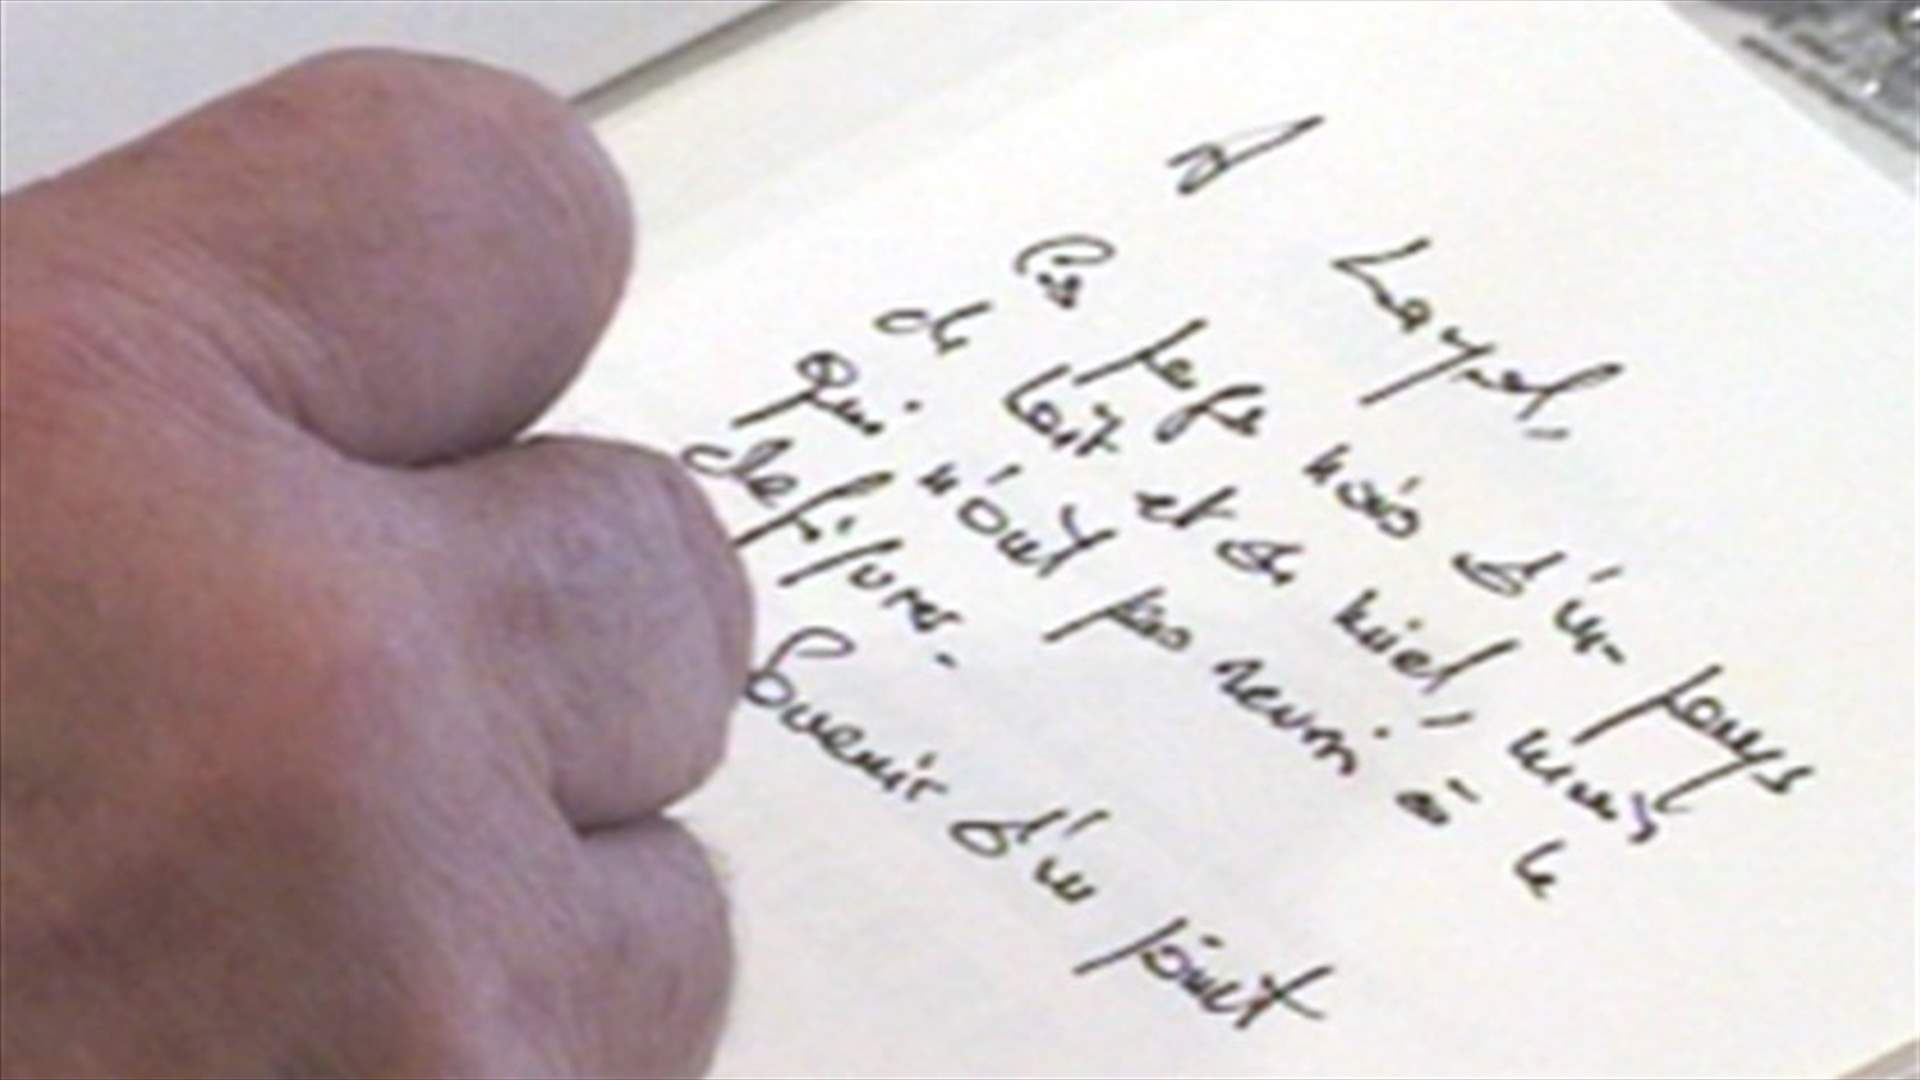 A
Laynel,
Ces page d'un pays
de lait et de miel,
qui n'ont pas reussi à le
defigurer.
Souvenir d'un point